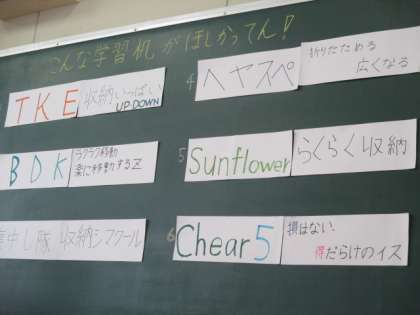 こんな学習机がほしかってん!
TKE
収納いっぱい
UP DOWN
BDK
ラクラク移動
楽に移動するZ
中し隊
収納シマクール
4
ヘヤスペ
折りたためる
広くなる
5
Sunflower
らくらく収納
6
Chear5
損はない、
得だらけのイス